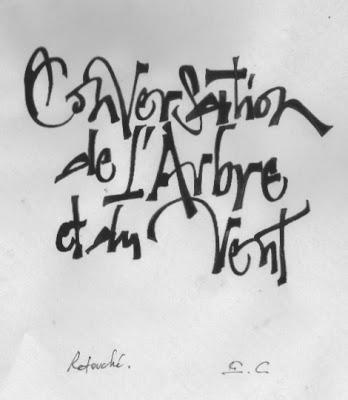 Conversation
de L'Arbre
et du Vent
Retouché. E.C